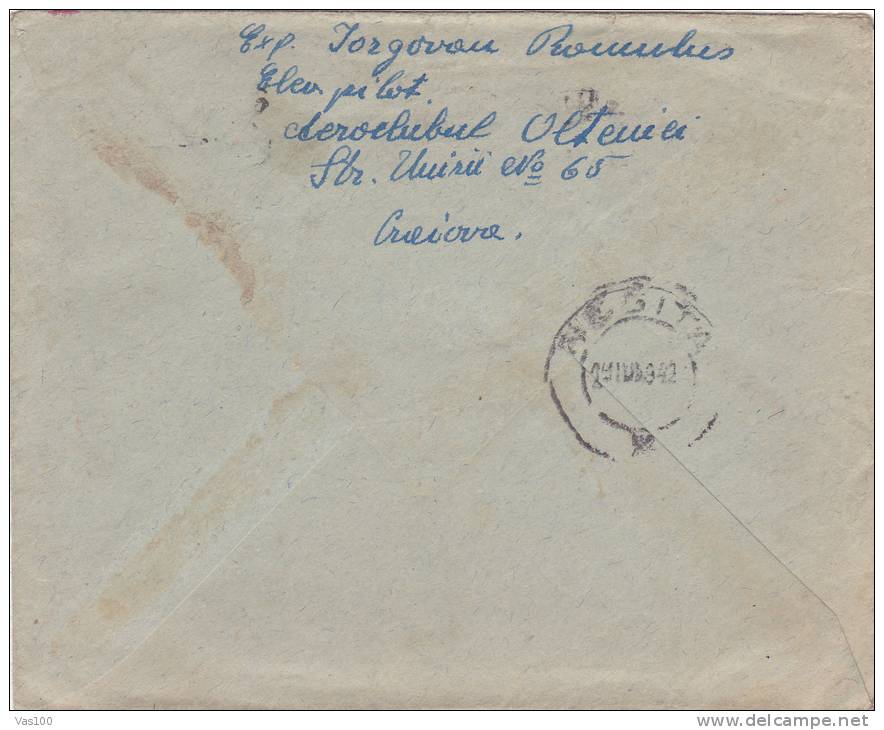 Exp. Iorgovan Romulus
Elev pilot.
Aeroclubul Olteniei
Str. Unirii No 65
Craiova.
942
Vas100
www.delcampe.net